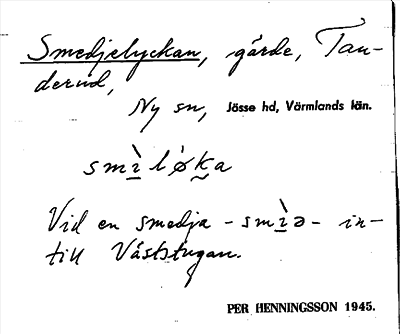 Smedjelyckan, gärde, Tan-
derud,
Ny sn, Jösse hd, Värmlands län.
smìløka
Vid en smedja - smìə - in-
till Väststugan.
PER HENNINGSSON 1945.